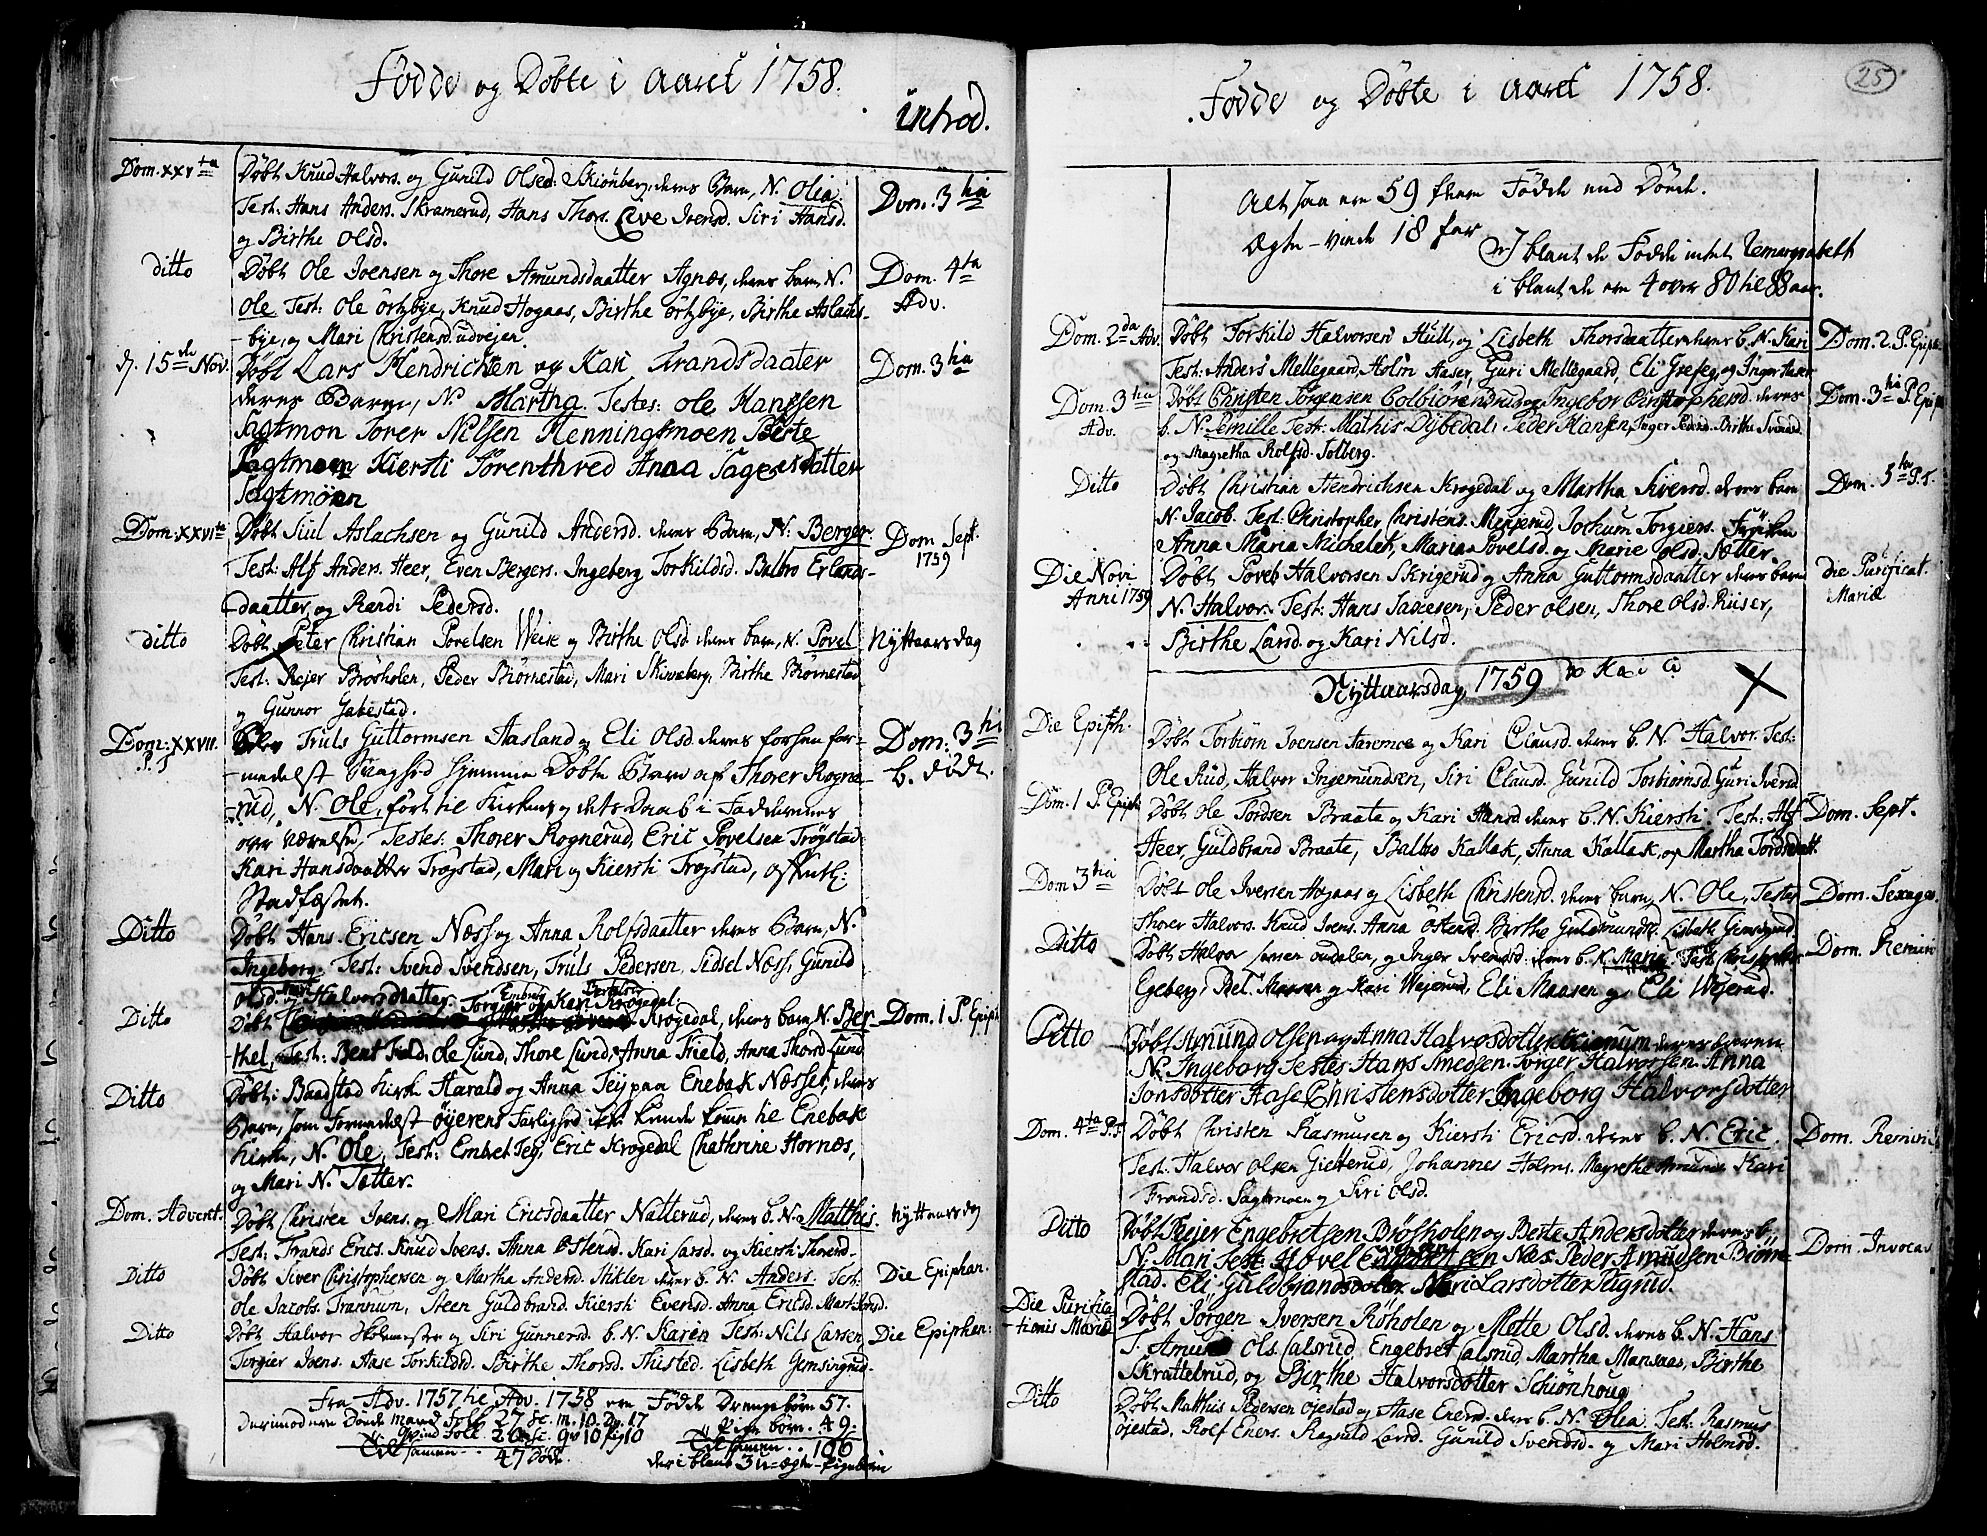 Fødde og Døbte i Aaret 1758.
introd.
Dom. XXVta
Døbt Knud Halvors. og Gunild Olsd. Skiønberg, deres Barn, N. Olia.
Test: Hans Anders. Skramerud, Hans Thors. Live Joensd. Siri Hansd.
og Birthe Olsd.
Dom. 3tia
ditto
Døbt Ole Joensen og Thore Amundsdaatter Agnæs, deres barn, N.
Ole Test: Ole Örtzbye, Knud Hogaas, Birthe Örtzbye, Birthe Aslachs-
-bye, og Mari Christensd. udvejen.
Dom. 4ta
Adv.
d. 15de Nov.
Døbt Lars Hendrichsen og Kari Frandsdaater
deres Barn, N. Martha. Testes: Ole Hanssen
Sagtmon Torer Nilsen Henningsmoen Berte
Sagtmoen Kiersti Sorenthved Anna Tagesdatter
Sagtmoen
Dom. 3tia
Dom: XXVIta
Døbt Siul Aslachsen og Gunild Andersd. deres Barn, N. Berger.
Test: Alf Anders. Heer, Even Bergers. Ingeberg Torkildsd. Balbro Erlands-
daatter, og Randi Pedersd.
Dom Sept.
1759
ditto
Døbt Peter Christian Povelsen Weise og Birthe Olsd. deres barn, N. Povel
Test: Rejer Brøsholen, Peder Biørnestad, Mari Skinneberg, Birthe Biørnestad
og Gunnor Gabestad.
Nyttaarsdag
Dom: XXVII.
P. T
Blev Truls Guttormsen Aasland og Eli Olsd. deres forhen for-
-medelst Svaghed hjemme Døbte Barn af Thorer Rogne-
-rud, N. Ole, ført til Kirken og dets Daab i Faddernes
overværelse, Testes: Thorer Rognerud, Eric Povelsen Trøgstad:
Kari Hansdaatter Trøgstad, Mari og Kiersti Trøgstad,
Stadfæstet.
Dom: 3tii
b. død.
Ditto
Døbt Hans Ericsen Næss og Anna Rolfsdaatter deres Barn, N.
Ingeborg. Test: Svend Svendsen, Truls Pedersen, Sidsel Næss, Gunild
Olsd. og Halvorsdaatter.
Ditto
Døbt Torgier og Kari Krogedal, deres barn, N. Ber-
-thel, Test: Bent Field, Ole Lund, Thore Lund, Anna Field, Anna Thorsd Lund
Dom. 1 P. Epiph
Ditto
Døbt i Baadstad Kirke Harald og Anna Tejg paa Enebak Næsset, deres
Barn, som formedelst Øyerens Farlighed ikke kunde komme til Enebak
Kirke, N. Ole, Test: Embret Tejg, Eric Krogedal Chathrine Hornæs,
og Mari N. Tætter.
Dom. Advent.
Døbt Christen Joens. og Mari Ericsdaatter Natterud, deres b. N. Matthis.
Test: Frands Erics. Knud Joens. Anna Ostensd. Kari Larsd. og Kiersti Thoresd.
Nyttaarsdag
Ditto
Døbt Siver Christophersen og Martha Andersd. Stiklen deres b. N. Anders. Test:
Ole Jacobs. Trannum, Steen Guldbrand. Kiersti Evensd. Anna Ericsd.
Die Epiphan.
Ditto
Døbt Halvor og Siri Gunnersd. b. N. Karen Test: Nils Larsen,
Torgier Joens. Aase Torkildsd. Birthe Thorsd. Thisted. Lisbeth Gemsingrud.
Die Epiphan:
Fra Adv. 1757 til Adv. 1758 ere Fødde Drengebørn 57.
Derimod ere Døde mand folk 27 Sc. m. 10. Dr. 17
Pigebørn. 49.
Qvindfolk 20 Sc. qv 10 Pig 10
Tilsamen.. 106
Tilsamen.. 47 Døde.
deriblant 3 u-Ægte-Pigebørn
Fødde og Døbte i Aaret 1758.
25
Alt saa ere 59 flere Fødde end Døde.
Ægte-viede 18 Par
blant de Fødde intet Remarqvabelt
i blant de ere 4 over 80 til 88 aar.
Dom. 2da Adv.
Døbt Torkild Halvorsen Hull, og Lisbeth Thorsdaatter deres b. N. Kari
Test: Anders Mellegaard, Holm Aaser, Guri Mellegaard, Eli Grefeg, og Inger Aaser
Dom. 2. P. Epiph.
Dom. 3tia
Adv.
Døbt Christen Jørgensen Colbiørensrud og Ingebor Christophersd. deres
b. N. Pernille Test: Mathis Dybedal, Peder Hansen, Inger Pedersd. Birthe Svensd.
og Magretha Rolfsd. Solberg.
Dom. 3tia P. Epiph
Ditto
Døbt Christian Hendrichsen Krogedal og Martha Siversd. deres barn
N. Jacob. Test: Christopher Christens. Mejerud, Jochum Torgiers. Frøiken
Anna Maria Michelet, Maria Povelsd. og Marie Olsd. Sætter.
Dom. 5ta P. T.
Die Novi
Anni 1759
Døbt Povel Halvorsen Skrigerud og Anna Guttormsdaatter deres barn
N. Halvor. Test: Hans Isaacsen, Peder Olsen, Thore Olsd. Riiser,
Birthe Larsd. og Kari Nilsd.
Die Purificat.
Mariæ
Nyttaarsdag 1759
Die Epiph.
Døbt Torbiørn Joensen og Kari Clausd. deres b. N. Halvor. Test:
Ole Rud, Halvor Ingemundsen, Siri Clausd. Gunild Torbiørnsd. Guri Iversd
Dom. 1 P. Epiph
Døbt Ole Tordsen Braate og Kari Hansd. deres b. N. Kiersti. Test: Alf
Heer, Guldbrand Braate, Balbro Kallak, Anna Kallak, og Martha Tordsdatt.
Dom. Sept.
Dom 3tia
Døbt Ole Iversen Hogaas og Lisbeth Christensd. deres barn, N. Ole, Testes
Thorer Halvors. Knud Joens. Anna Ostensd. Birthe Guldmundsd. Lisbeth Gemsingrud.
Dom. Sexages.
Ditto
Døbt Halvor og Inger Svensd. deres b. N. Marie Test:
Egeberg, Kari Wejerud, Eli Maasen og Eli Wejerud.
Dom. Remini
Ditto
Døbt Amund Olsen og Anna Halvorsdotter deres Barn
N. Ingeborg Testes Hans Smedsen. Torger Halvorssen. Anna
Jonsdotter Aase Christensdotter Ingeborg Halvorsdotter
Dom. 4ta P. T
Døbt Christen Rasmusen og Kiersti Ericsd. deres b. N. Eric.
Test: Halvor Olsen Gietterud, Johannes Holms. Magrethe Amunds. Kari
Frandsd. Sagtmoen og Siri Olsd.
Dom. Remini
Ditto
Døbt Rejer Engebretsen Brøsholen og Berte Andersdotter deres b,,
N. Mari Test: Hovel Næs Peder Amudsen Biørne-
stad. Eli Guldbrandsdotter Mari Larsdotter Rugnud.
Dom. Invocav
Die Purifica
-tionis Mariæ
Døbt Jørgen Iversen Røholen og Mette Olsd. deres b. N. Hans
T. Amund Ols. Calsrud, Engebret Calsrud, Martha Mansaas, Birthe
Skrattelrud, og Birthe Halvorsdotter Schiønhoug
Ditto
Døbt Matthis Pedersen Øjestad og Aase Enersd. deres b. N. Olia. Test. Rasmus
Øjestad, Rolf Eners. Ragnild Larsd. Gunild Svendsd. og Mari Holmsd.